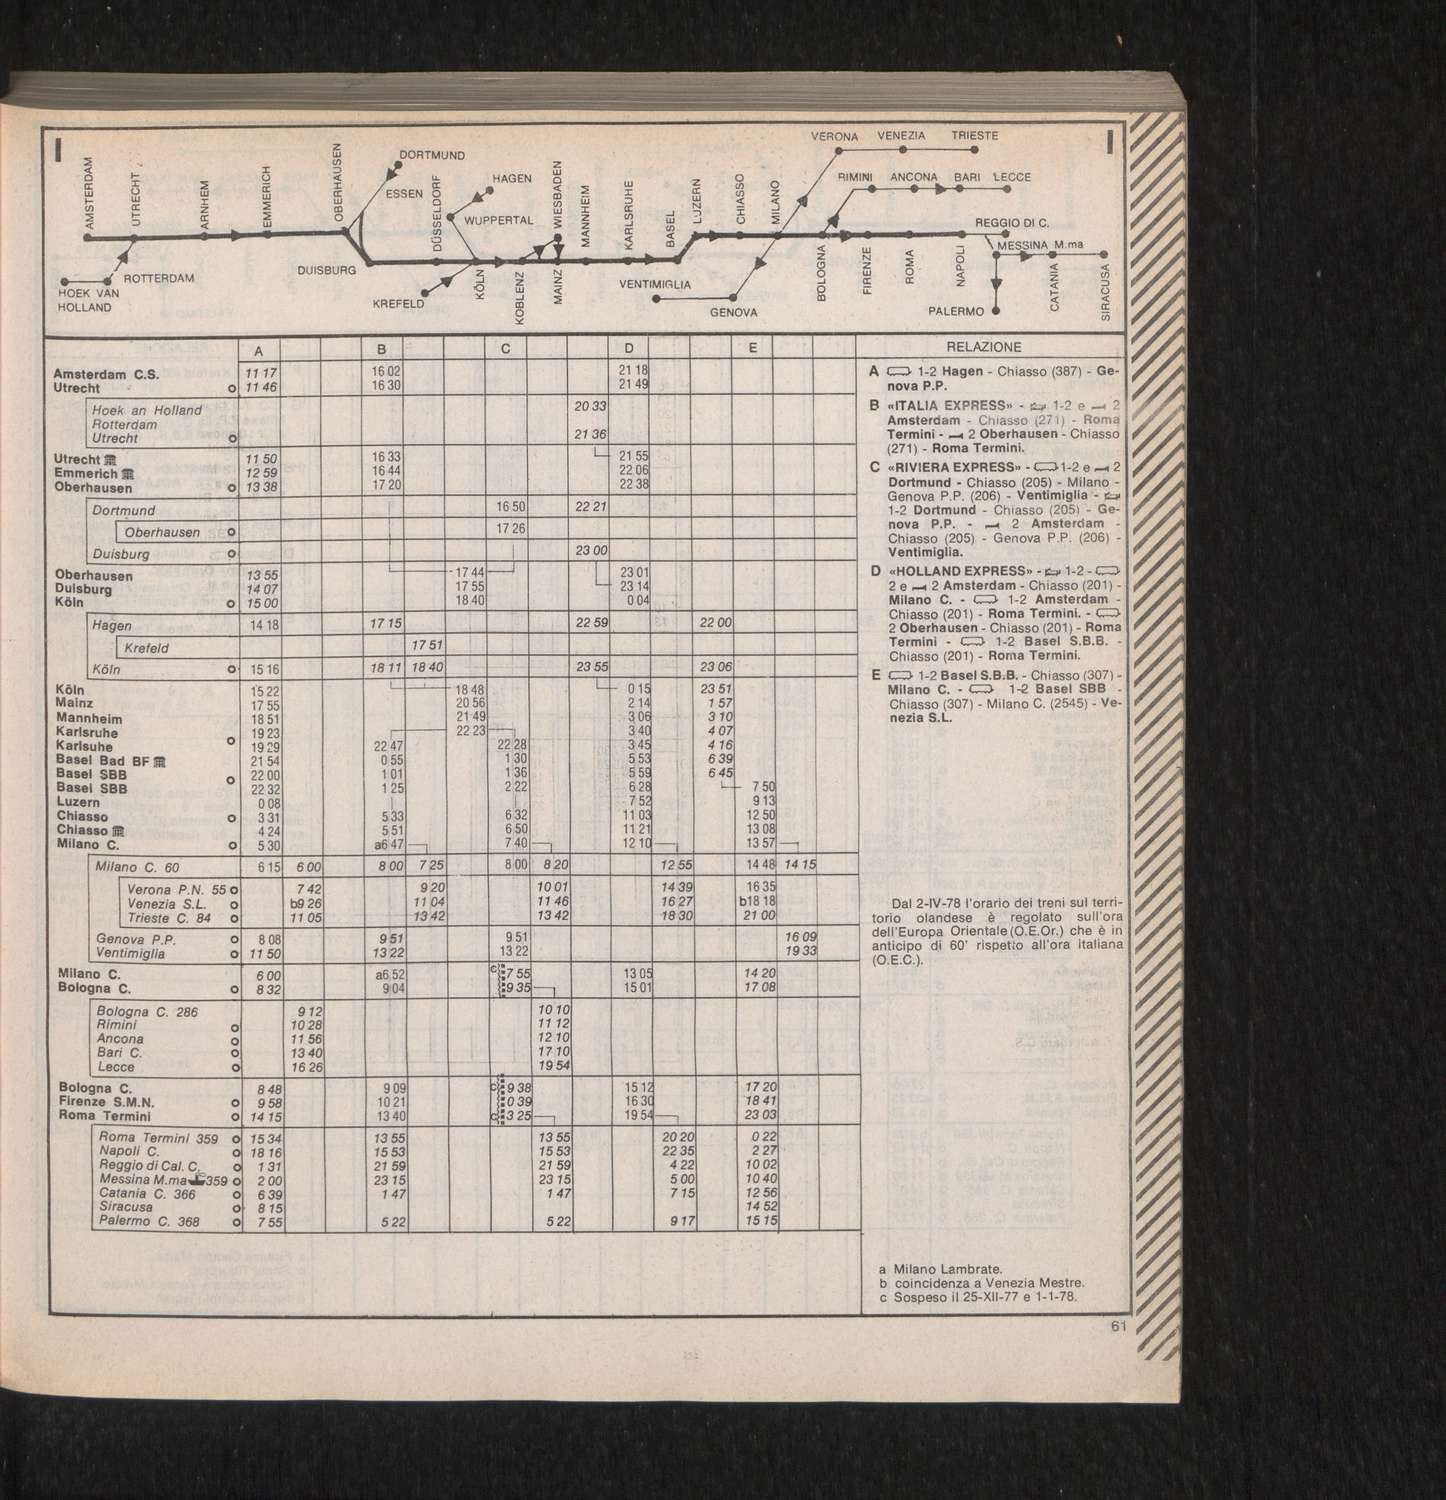 I I
AMSTERDAM UTRECHT ARNHEM EMMERICH OBERHAUSEN DORTMUND ESSEN DÜSSELDORF HAGEN WUPPERTAL WIESBADEN MANNHEIM KARLSRUHE BASEL LUZERN CHIASSO MILANO VERONA VENEZIA TRIESTE
RIMINI ANCONA BARI LECCE
REGGIO DI C.
MESSINA M.ma
HOEK VAN HOLLAND ROTTERDAM DUISBURG KREFELD KÖLN KOBLENZ MAINZ VENTIMIGLIA GENOVA BOLOGNA FIRENZE ROMA NAPOLI PALERMO CATANIA SIRACUSA
A B C D E RELAZIONE
Amsterdam C.S. 11 17 16 02 21 18
Utrecht o 11 46 16 30 21 49
Hoek an Holland 20 33
Rotterdam
Utrecht o 21 36
Utrecht 11 50 16 33 21 55
Emmerich 12 59 16 44 22 06
Oberhausen o 13 38 17 20 22 38
Dortmund 16 50 22 21
Oberhausen o 17 26
Duisburg o 23 00
Oberhausen 13 55 17 44 23 01
Duisburg 14 07 17 55 23 14
Köln o 15 00 18 40 0 04
Hagen 14 18 17 15 22 59 22 00
Krefeld 17 51
Köln o 15 16 18 11 18 40 23 55 23 06
Köln 15 22 18 48 0 15 23 51
Mainz 17 55 20 56 2 14 1 57
Mannheim 18 51 21 49 3 06 3 10
Karlsruhe o 19 23 22 23 3 40 4 07
Karlsuhe 19 29 22 47 22 28 3 45 4 16
Basel Bad BF 21 54 0 55 1 30 5 53 6 39
Basel SBB o 22 00 1 01 1 36 5 59 6 45
Basel SBB 22 32 1 25 2 22 6 28 7 50
Luzern 0 08 7 52 9 13
Chiasso o 3 31 5 33 6 32 11 03 12 50
Chiasso 4 24 5 51 6 50 11 21 13 08
Milano C. o 5 30 a6 47 7 40 12 10 13 57
Milano C. 60 6 15 6 00 8 00 7 25 8 00 8 20 12 55 14 48 14 15
Verona P.N. 55 o 7 42 9 20 10 01 14 39 16 35
Venezia S.L. o b9 26 11 04 11 46 16 27 b18 18
Trieste C. 84 o 11 05 13 42 13 42 18 30 21 00
Genova P.P. o 8 08 9 51 9 51 16 09
Ventimiglia o 11 50 13 22 13 22 19 33
Milano C. 6 00 a6 52 c 7 55 13 05 14 20
Bologna C. o 8 32 9 04 9 35 15 01 17 08
Bologna C. 286 9 12 10 10
Rimini o 10 28 11 12
Ancona o 11 56 12 10
Bari C. o 13 40 17 10
Lecce o 16 26 19 54
Bologna C. 8 48 9 09 c 9 38 15 12 17 20
Firenze S.M.N. o 9 58 10 21 0 39 16 30 18 41
Roma Termini o 14 15 13 40 c 3 25 19 54 23 03
Roma Termini 359 o 15 34 13 55 13 55 20 20 0 22
Napoli C. o 18 16 15 53 15 53 22 35 2 27
Reggio di Cal. C. o 1 31 21 59 21 59 4 22 10 02
Messina M.ma 359 o 2 00 23 15 23 15 5 00 10 40
Catania C. 366 o 6 39 1 47 1 47 7 15 12 56
Siracusa o 8 15 14 52
Palermo C. 368 o 7 55 5 22 5 22 9 17 15 15
A 1-2 Hagen - Chiasso (387) - Ge-
nova P.P.
B «ITALIA EXPRESS» - 1-2 e 2
Amsterdam - Chiasso (271) - Roma
Termini - 2 Oberhausen - Chiasso
(271) - Roma Termini.
C «RIVIERA EXPRESS» - 1-2 e 2
Dortmund - Chiasso (205) - Milano -
Genova P.P. (206) - Ventimiglia -
1-2 Dortmund - Chiasso (205) - Ge-
nova P.P. - 2 Amsterdam -
Chiasso (205) - Genova P.P. (206) -
Ventimiglia.
D «HOLLAND EXPRESS» - 1-2 -
2 e 2 Amsterdam - Chiasso (201) -
Milano C. - 1-2 Amsterdam -
Chiasso (201) - Roma Termini. -
2 Oberhausen - Chiasso (201) - Roma
Termini - 1-2 Basel S.B.B. -
Chiasso (201) - Roma Termini.
E 1-2 Basel S.B.B. - Chiasso (307) -
Milano C. - 1-2 Basel SBB -
Chiasso (307) - Milano C. (2545) - Ve-
nezia S.L.
Dal 2-IV-78 l'orario dei treni sul terri-
torio olandese è regolato sull'ora
dell'Europa Orientale (O.E.Or.) che è in
anticipo di 60' rispetto all'ora italiana
(O.E.C.).
a Milano Lambrate.
b coincidenza a Venezia Mestre.
c Sospeso il 25-XII-77 e 1-1-78.
61